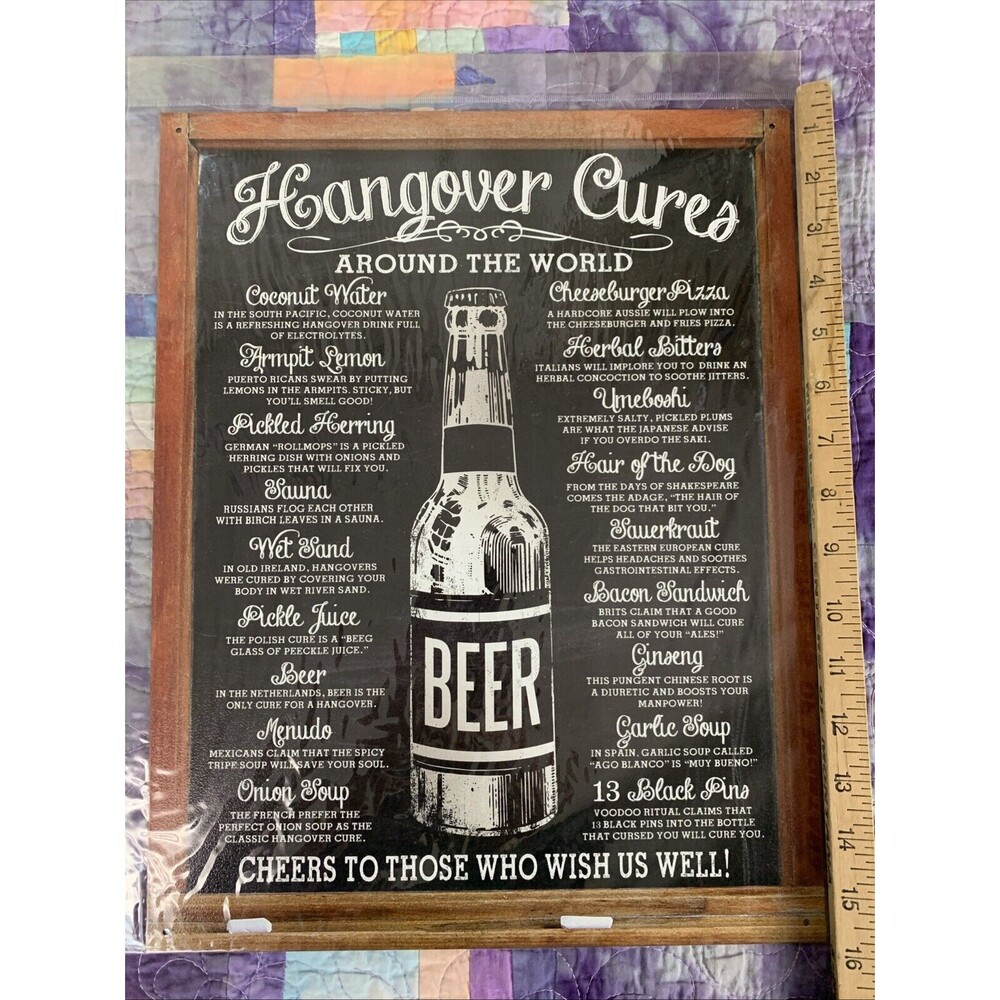 Hangover Cures
AROUND THE WORLD
Coconut Water
IN THE SOUTH PACIFIC, COCONUT WATER
IS A REFRESHING HANGOVER DRINK FULL
OF ELECTROLYTES.
Armpit Lemon
PUERTO RICANS SWEAR BY PUTTING
LEMONS IN THE ARMPITS. STICKY, BUT
YOU'LL SMELL GOOD!
Pickled Herring
GERMAN "ROLLMOPS" IS A PICKLED
HERRING DISH WITH ONIONS AND
PICKLES THAT WILL FIX YOU.
Sauna
RUSSIANS FLOG EACH OTHER
WITH BIRCH LEAVES IN A SAUNA.
Wet Sand
IN OLD IRELAND, HANGOVERS
WERE CURED BY COVERING YOUR
BODY IN WET RIVER SAND.
Pickle Juice
THE POLISH CURE IS A "BEEG
GLASS OF PEECKLE JUICE."
Beer
IN THE NETHERLANDS, BEER IS THE
ONLY CURE FOR A HANGOVER.
Menudo
MEXICANS CLAIM THAT THE SPICY
TRIPE SOUP WILL SAVE YOUR SOUL.
Onion Soup
THE FRENCH PREFER THE
PERFECT ONION SOUP AS THE
CLASSIC HANGOVER CURE.
BEER
Cheeseburger Pizza
A HARDCORE AUSSIE WILL PLOW INTO
THE CHEESEBURGER AND FRIES PIZZA.
Herbal Bitters
ITALIANS WILL IMPLORE YOU TO DRINK AN
HERBAL CONCOCTION TO SOOTHE JITTERS.
Umeboshi
EXTREMELY SALTY, PICKLED PLUMS
ARE WHAT THE JAPANESE ADVISE
IF YOU OVERDO THE SAKI.
Hair of the Dog
FROM THE DAYS OF SHAKESPEARE
COMES THE ADAGE, "THE HAIR OF
THE DOG THAT BIT YOU."
Sauerkraut
THE EASTERN EUROPEAN CURE
HELPS HEADACHES AND SOOTHES
GASTROINTESTINAL EFFECTS.
Bacon Sandwich
BRITS CLAIM THAT A GOOD
BACON SANDWICH WILL CURE
ALL OF YOUR "ALES!"
Ginseng
THIS PUNGENT CHINESE ROOT IS
A DIURETIC AND BOOSTS YOUR
MANPOWER!
Garlic Soup
IN SPAIN, GARLIC SOUP CALLED
"AGO BLANCO" IS "MUY BUENO!"
13 Black Pins
VOODOO RITUAL CLAIMS THAT
13 BLACK PINS INTO THE BOTTLE
THAT CURSED YOU WILL CURE YOU.
CHEERS TO THOSE WHO WISH US WELL!
1
2
3
4
5
6
7
8
9
10
11
12
13
14
15
16